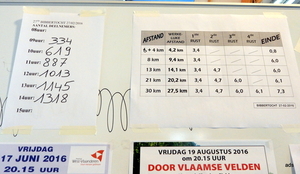 AANTAL DEELNEMERS
08uur:
09uur: 334
10uur: 619
11uur: 887
12uur: 1013
13uur: 1145
14uur: 1318
15uur:
AFSTAND WERKELIJKE AFSTAND 1ste RUST 2de RUST 3de RUST 4de RUST EINDE
6 + 4 km 4,2 km 3,4 0,8
8 km 9,4 km 3,4 6,0
13 km 14,1 km 3,4 4,7 6,0
21 km 20,2 km 3,4 4,7 6,0 6,1
30 km 27,5 km 3,4 4,7 6,0 6,1 7,3
VRIJDAG
17 JUNI 2016
20.15 UUR
VRIJDAG 19 AUGUSTUS 2016
om 20.15 UUR
DOOR VLAAMSE VELDEN